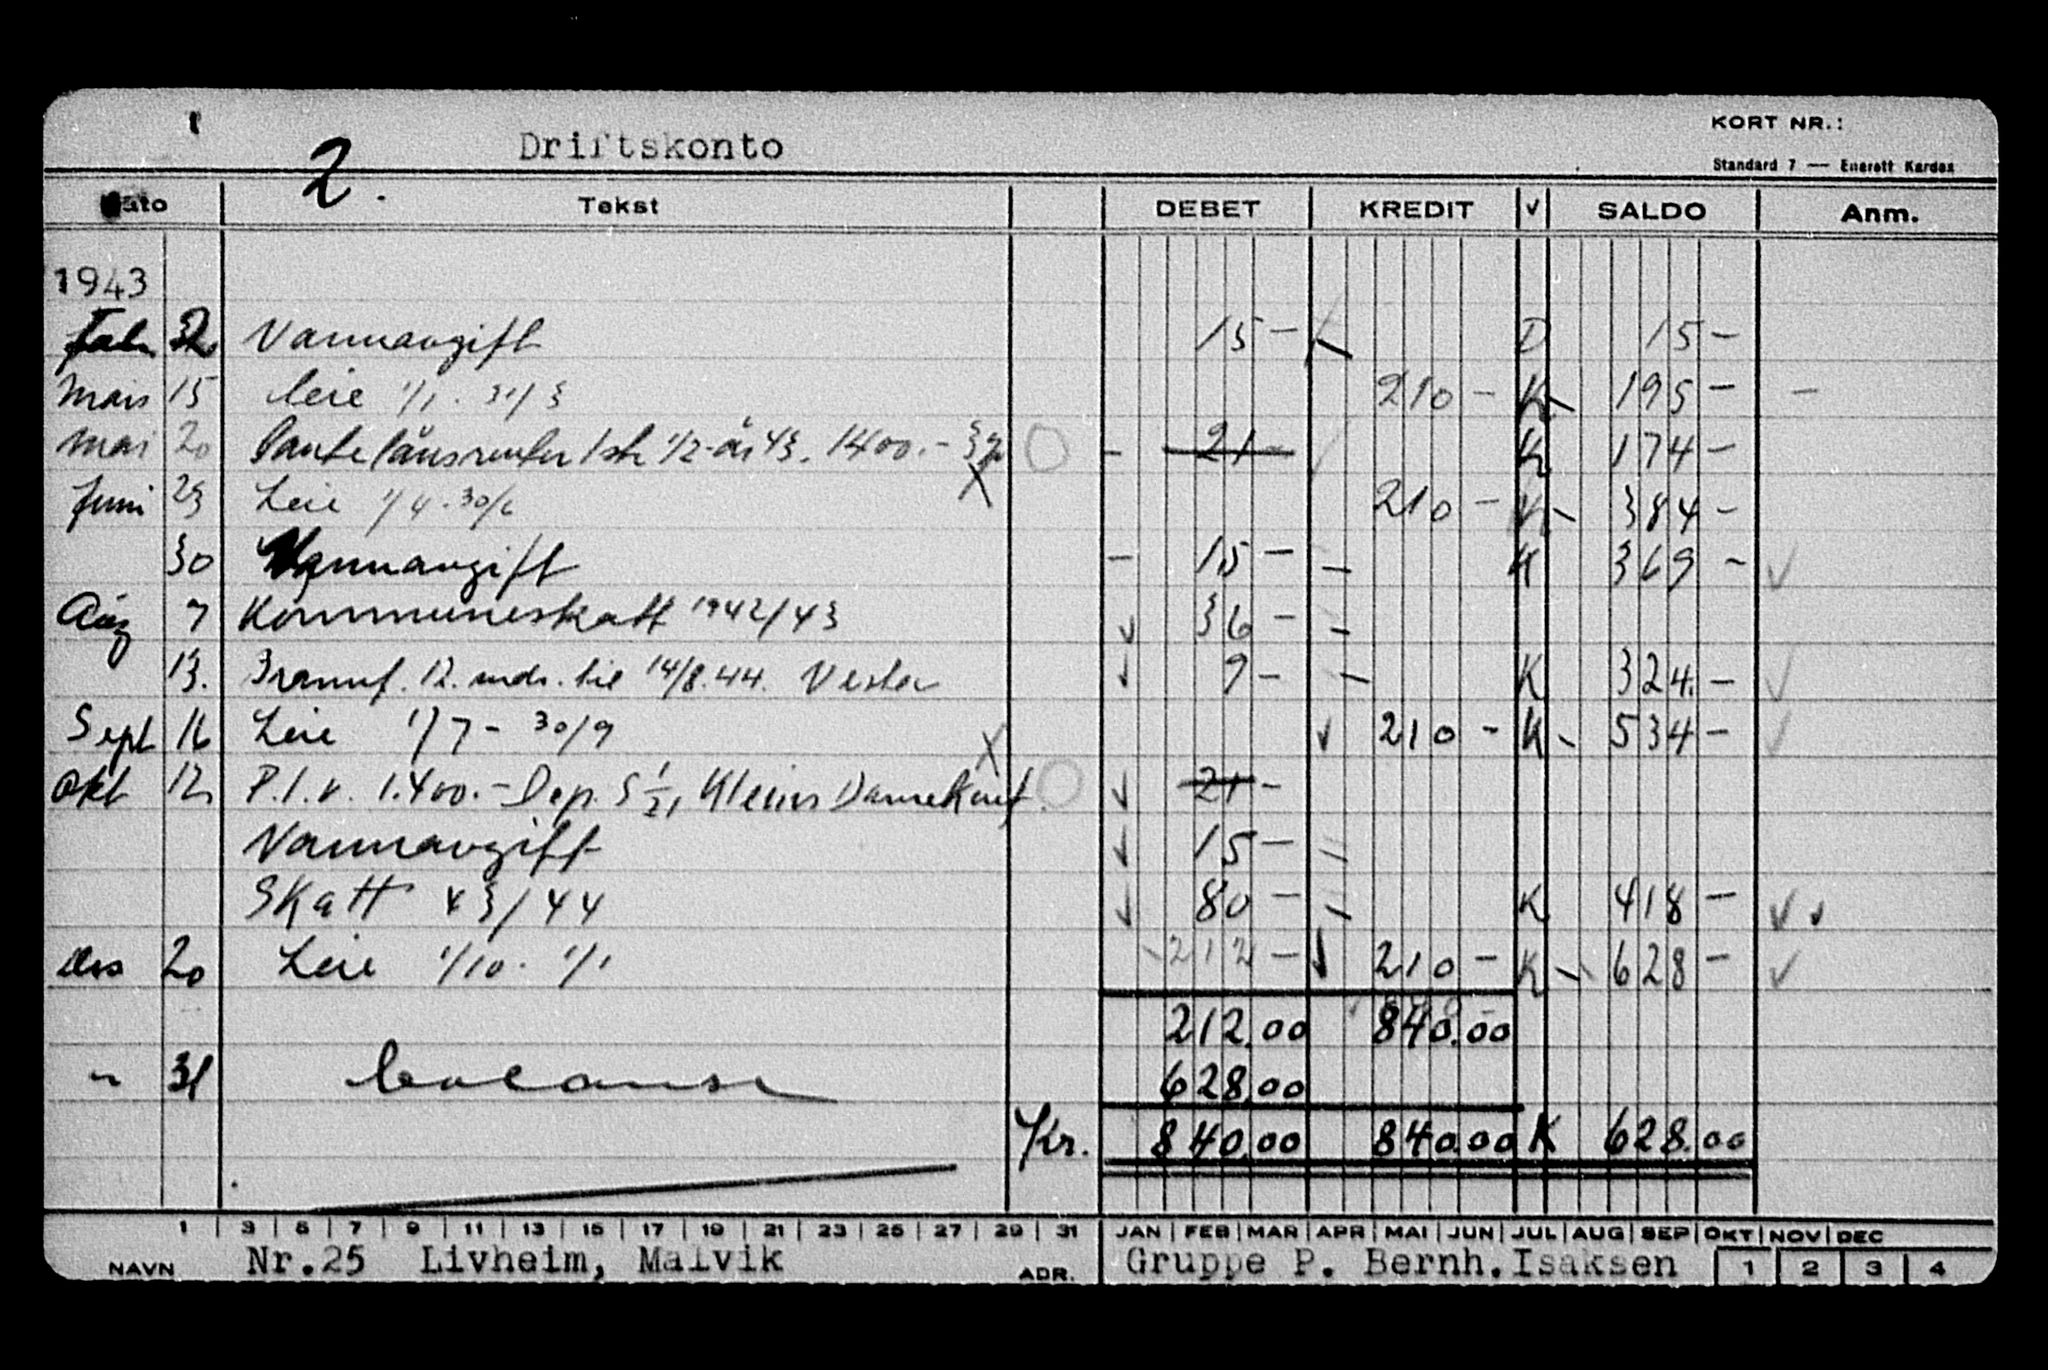 KORT NR.:
2. Driftskonto
Standard 7 — Enerett Kardex
Dato Tekst DEBET KREDIT √ SALDO Anm.
1943
Vannavgift 15 - D 15 -
Mars 15 Leie 1/1 - 31/3 210 - K 195 -
Mai 20 Pantelånsrenter 1ste 1/2-år 43. 1400.- 3% 21 - K 174 -
Juni 23 Leie 1/4 - 30/6 210 - K 384 -
30 Vannavgift - 15 - K 369 -
Aug 7 Kommuneskatt 1942/43 36 -
13. Brannf. 12 mdr. til 14/8.44. Vesta 9 - K 324. -
Sept 16 Leie 1/7 - 30/9 210 - K 534 -
Okt 12 P.l.r. 1.400.- Dep. 21 -
Vannavgift 15 -
Skatt 43/44 80 - K 418 -
Des 20 Leie 1/10 - 1/1 212 - 210 - K 628 -
212.00 840.00
" 31 balanse 628.00
Kr. 840.00 840.00 K 628.00
1 3 5 7 9 11 13 15 17 19 21 23 25 27 29 31 JAN FEB MAR APR MAI JUN JUL AUG SEP OKT NOV DEC
NAVN Nr.25 Livheim, Malvik ADR. Gruppe P. Bernh. Isaksen 1 2 3 4